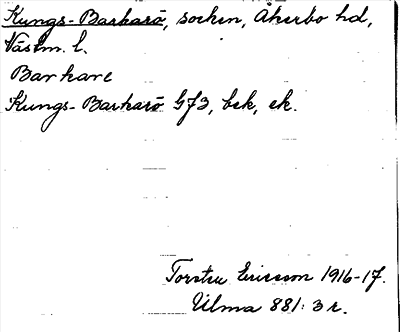 Kungs-Barkarö, socken, Åkerbo hd,
Västm. l.
Barkare
Kungs-Barkarö Gf3, bek, ek.
Torsten Ericsson 1916-17.
Ulma 881: 3 r.